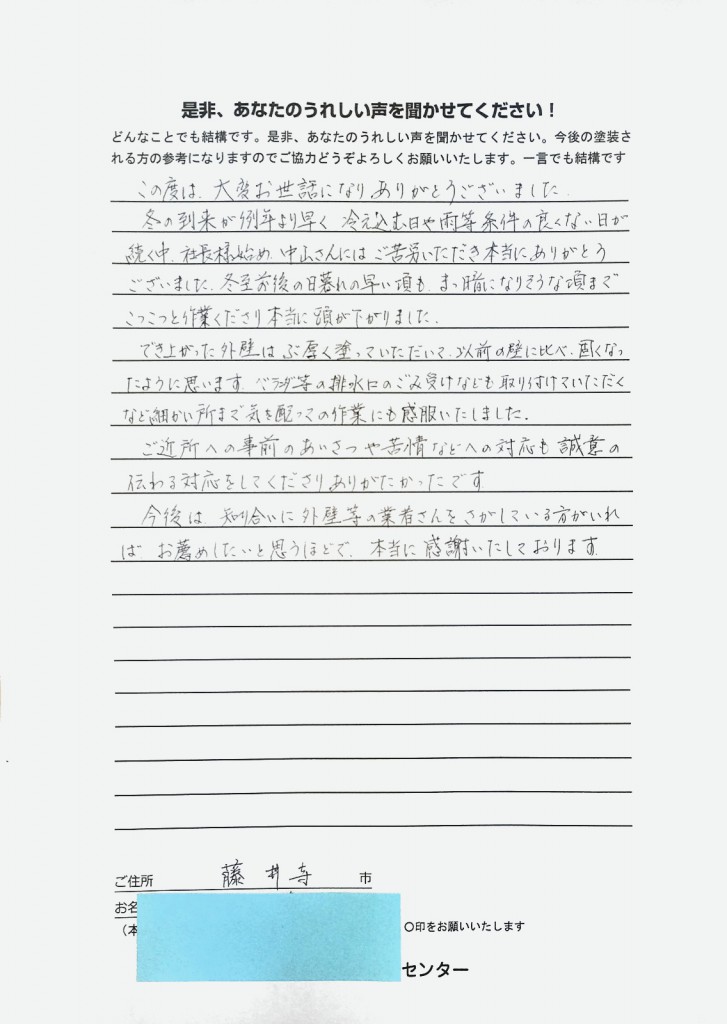 是非、あなたのうれしい声を聞かせてください！
どんなことでも結構です。是非、あなたのうれしい声を聞かせてください。今後の塗装さ
れる方の参考になりますのでご協力どうぞよろしくお願いいたします。一言でも結構です
この度は、大変お世話になりありがとうございました。
冬の到来が例年より早く 冷え込む日や雨等条件の良くない日が
続く中、社長様始め、中山さんには ご苦労いただき本当にありがとう
ございました。冬至前後の日暮れの早い頃も、まっ暗になりそうな頃まで
こつこつと作業くださり本当に頭が下がりました。
でき上がった外壁は ぶ厚く塗っていただいて、以前の壁に比べ、固くなっ
たように思います。ベランダ等の排水口のごみ受けなども取り付けていただく
など細かい所まで気を配っての作業にも感服いたしました。
ご近所への事前のあいさつや苦情などへの対応も誠意の
伝わる対応をしてくださりありがたかったです
今後は、知り合いに外壁等の業者さんをさがしている方がいれ
ば お薦めしたいと思うほどで、本当に感謝いたしております。
ご住所 藤井寺 市
お名
（本 〇印をお願いいたします
センター